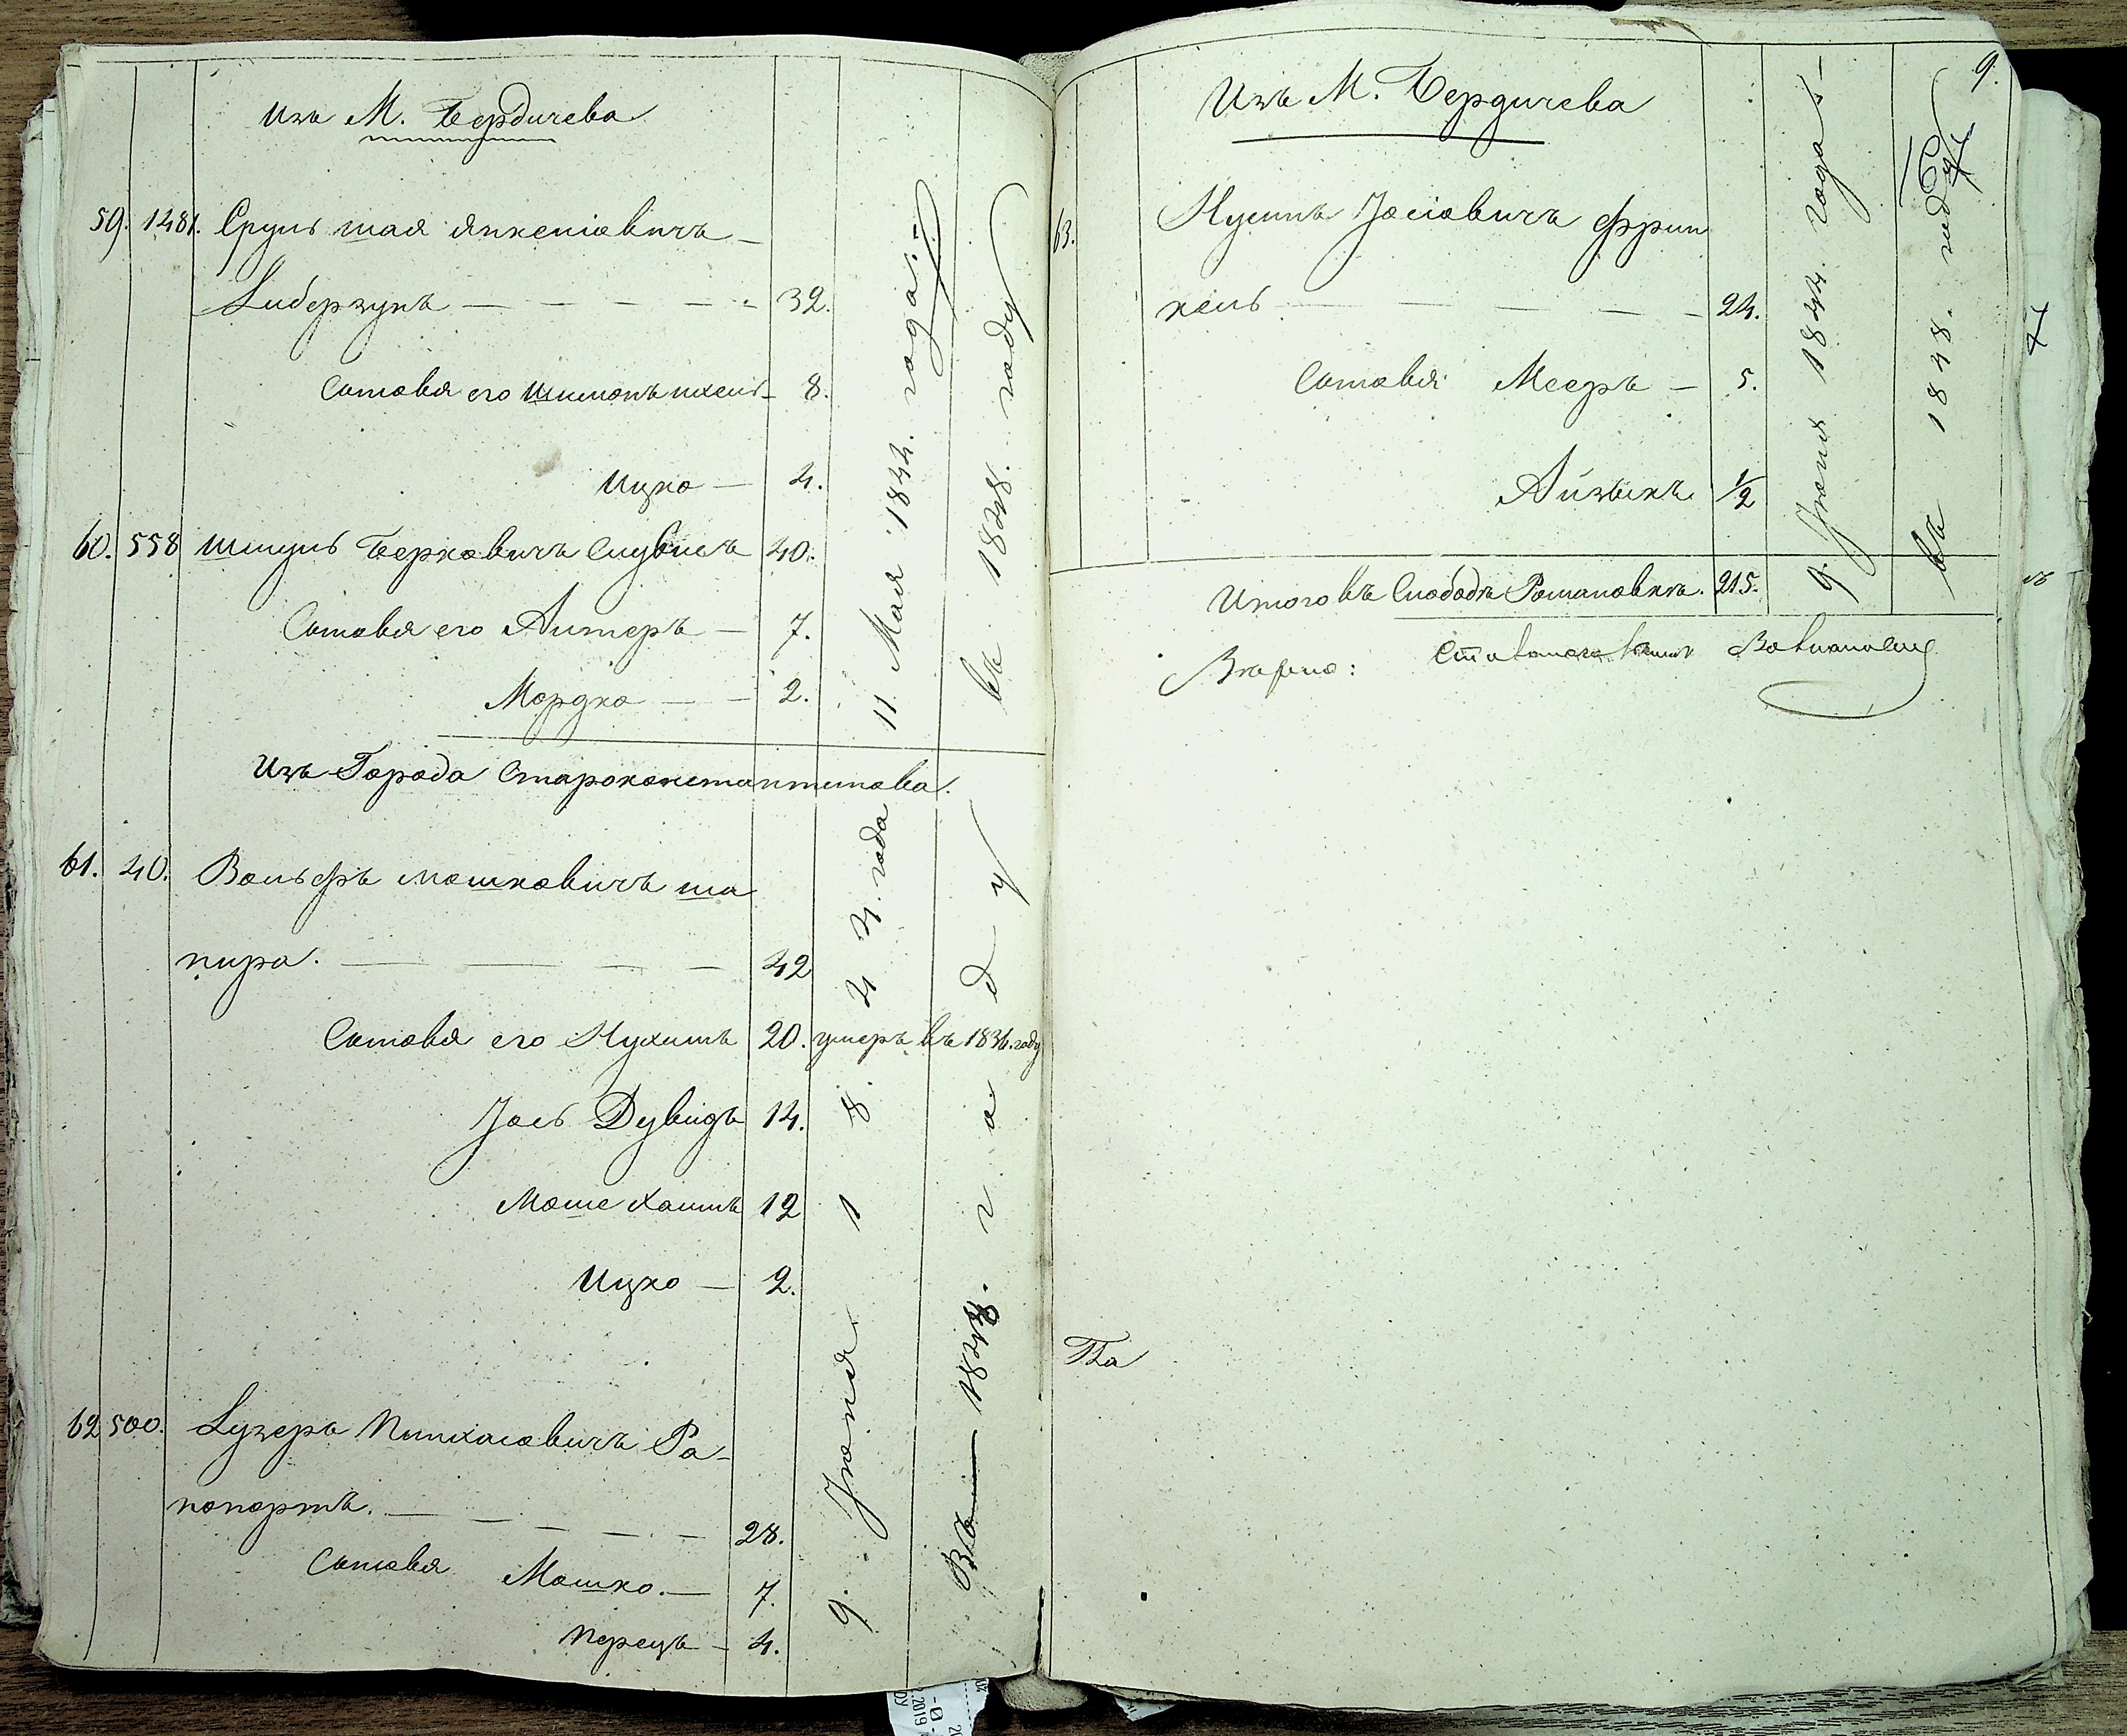 Изъ М. Бердичева
59. 1481. Сруль шая Янкеліовичъ —
Либерзунъ — — — — 32.
Сыновья его Шимонъ ихель — 8.
Ицко — 4.
60. 558 Шмуль Берковичъ 40.
Сыновья его Алтеръ — 7.
Мордко — — 2.
11. Мая 1844. года.
въ 1848. году
Изъ Города Староконстантинова.
61. 40. Вольфъ мошковичъ ша
пира. — — — — 42
Сыновья его Нухимъ 20. умеръ въ 1836. году
Іось Дувидъ 14.
Моше Хаимъ 12
Ицко — 2.
62 500. Лузеръ Пинхасовичъ Ра-
попортъ. — — — — — 28.
Сыновья Мошко. — 7.
Перецъ — 4.
9. Іюня 1844. года
Въ — 1848. году
9.
Изъ М. Бердичева
63. Нусинъ Іосіовичъ Френ
кель — — — — 24.
Сыновья Мееръ — 5.
Айзыкъ 1/2
9. Іюня 1844. года
въ 1848. году
Итого въ Слободѣ Романовкѣ. 215.
Вѣрно: